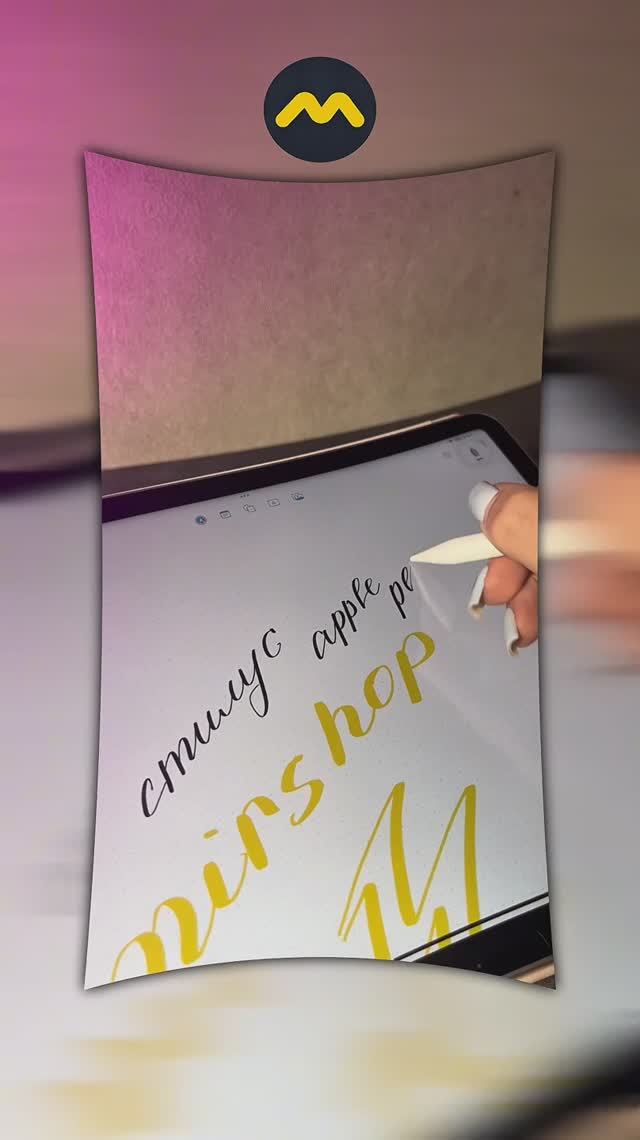 стилус apple pe
mirshop
M